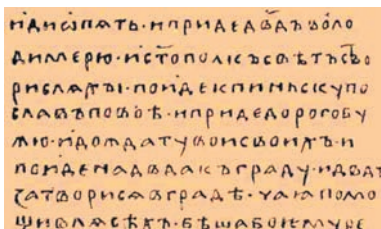 идиѡпѧть·и придедв҃дъволо
димерю·ист҃ополкъсвѣтъство
рислѧхы·поидекпиньскупо
славъповоѣ·ипридедорогобу
жю·идождатувоисвоихъ·и
поиденадв҃дакъграду·идв҃дъ
затворисѧвградѣ·чаꙗпомо
щивлѧсѣхъ·бѣшабоѥмуре